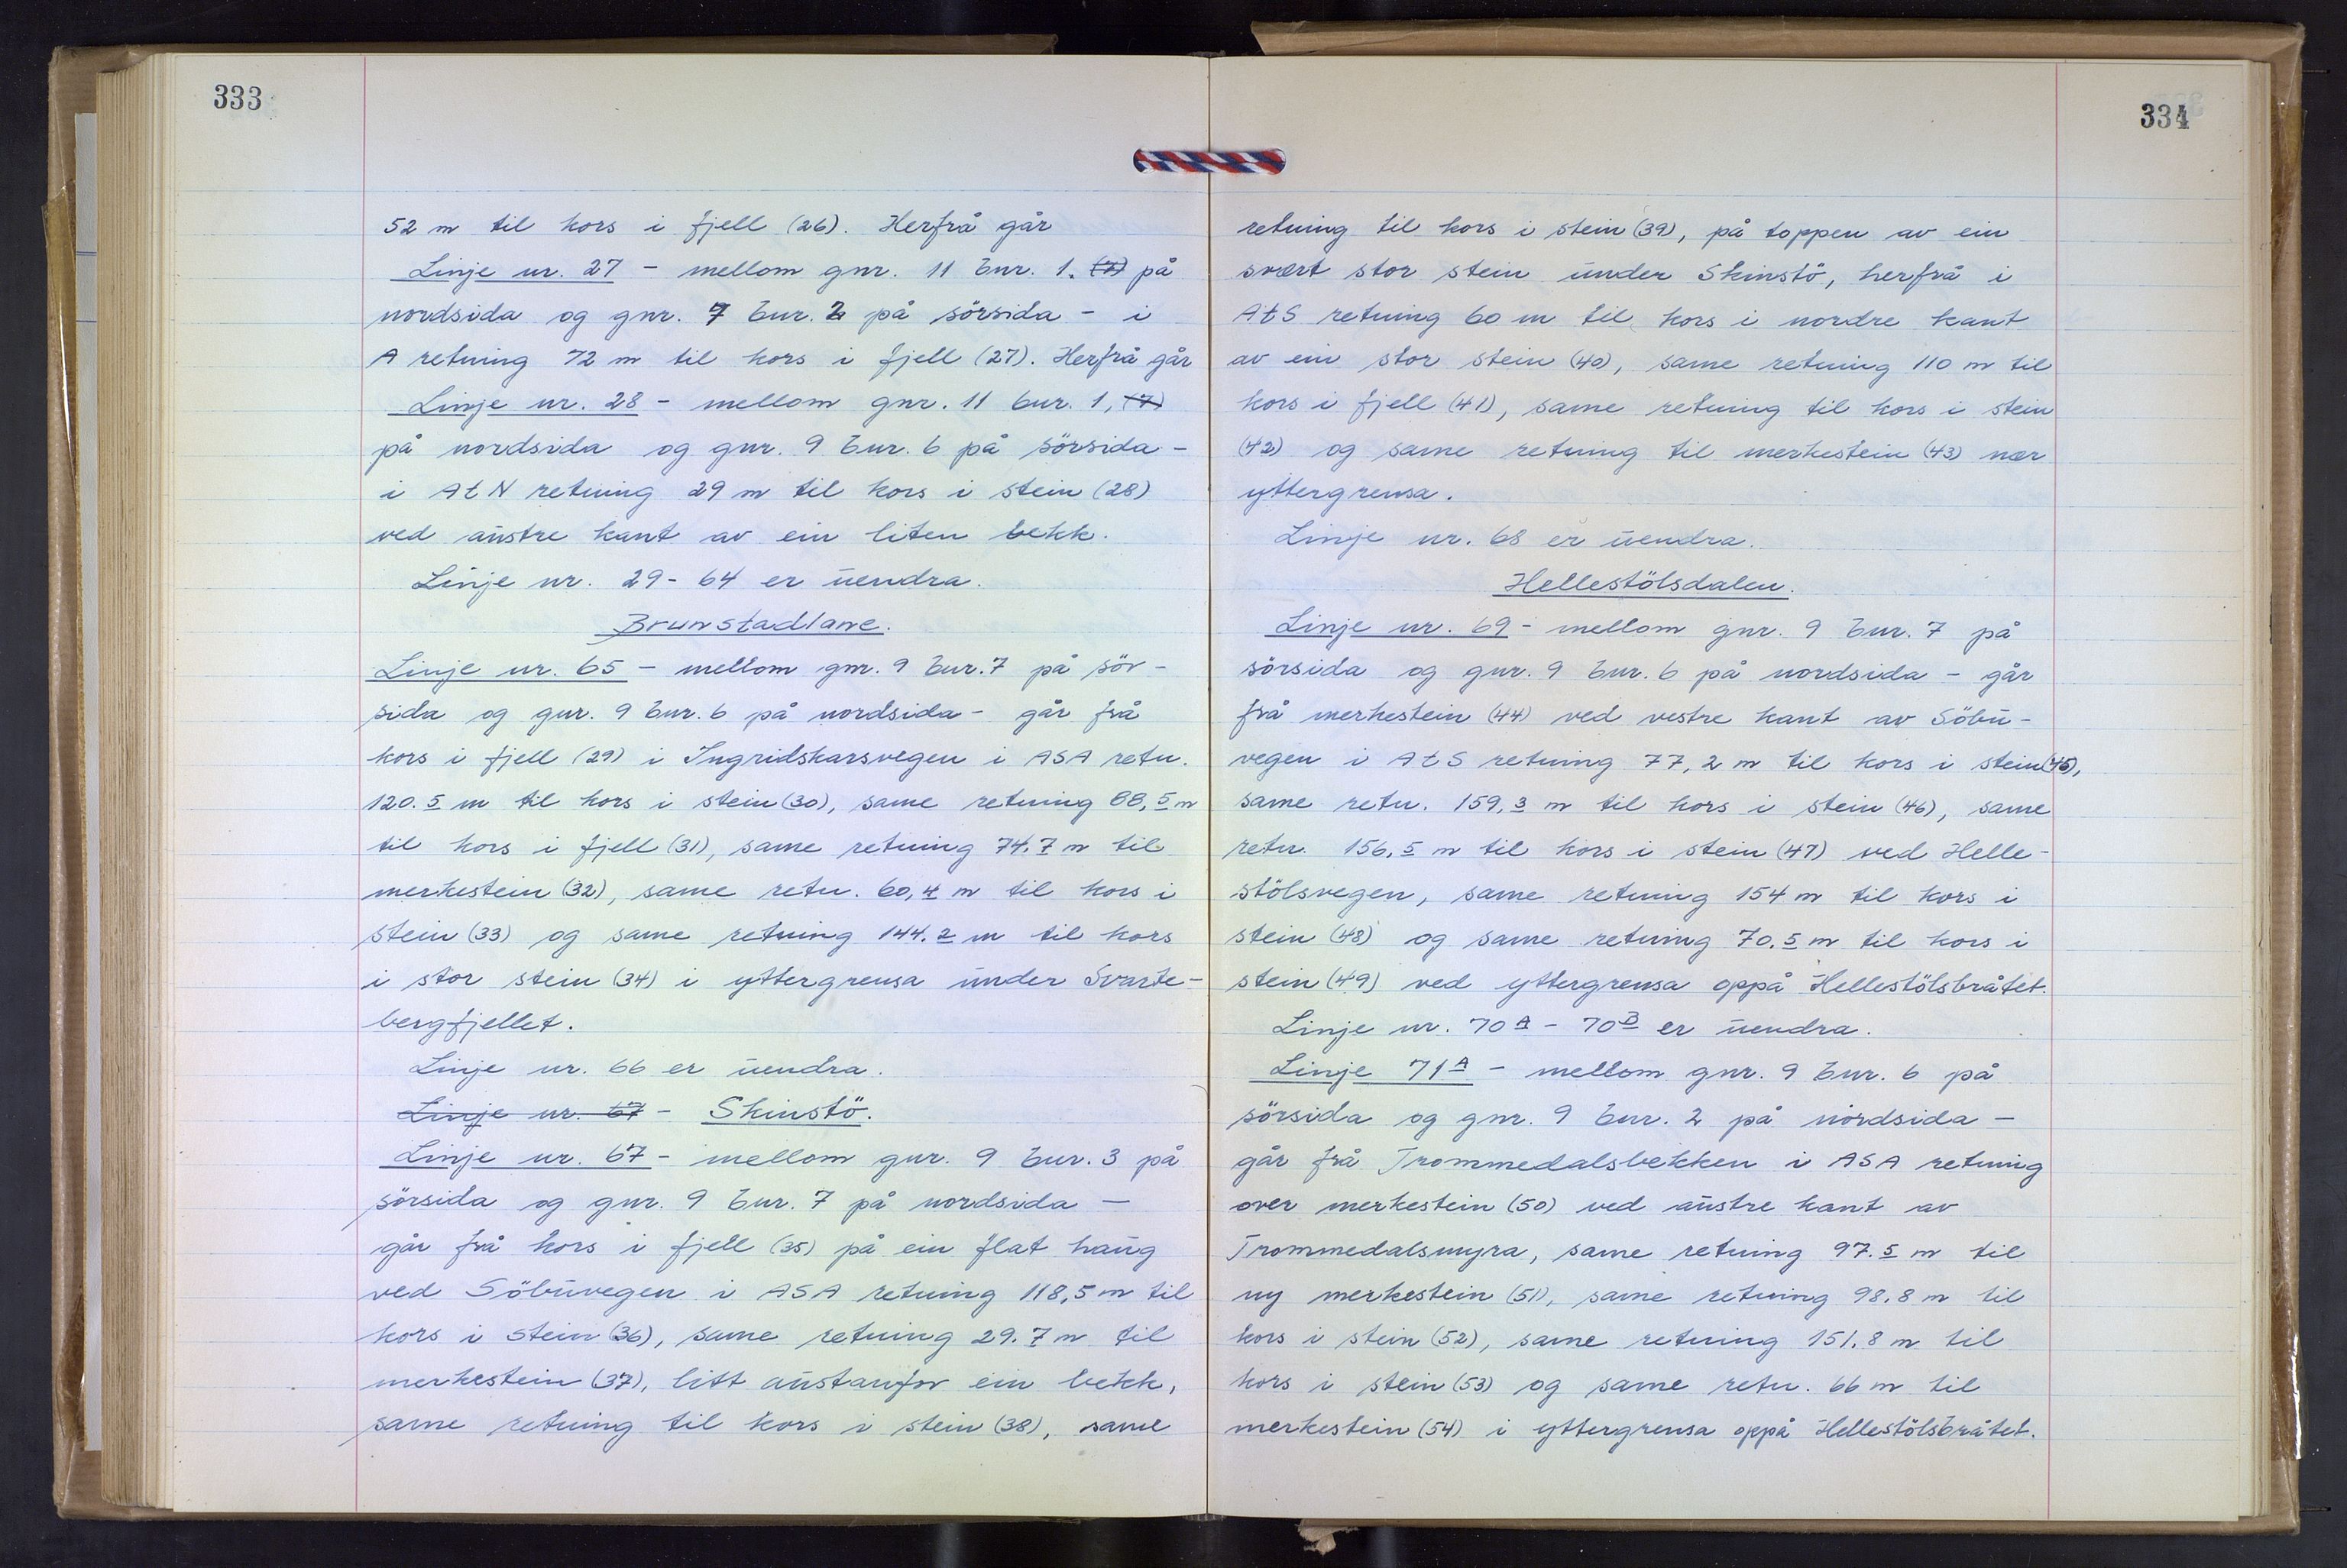 333
52 m til kors i fjell (26). Herfrå går
Linje nr. 27 - mellom gnr. 11 bnr. 1. (7) på
nordsida og gnr. 7 bnr. 2 på sörsida - i
A retning 72 m til kors i fjell (27). Herfrå går
Linje nr. 28 - mellom gnr. 11 bnr. 1, (7)
på nordsida og gnr. 9 bnr. 6 på sörsida -
i AtN retning 29 m til kors i stein (28)
ved austre kant av ein liten bekk.
Linje nr. 29-64 er uendra.
Brunstadlane.
Linje nr. 65 - mellom gnr. 9 bnr. 7 på sör-
sida og gnr. 9 bnr. 6 på nordsida - går frå
kors i fjell (29) i Ingridskarsvegen i ASA retn.
120.5 m til kors i stein (30), same retning 88,5 m
til kors i fjell (31), same retning 74.7 m til
merkestein (32), same retn. 60,4 m til kors i
stein (33) og same retning 144.2 m til kors
i stor stein (34) i yttergrensa under Svarte-
bergfjellet.
Linje nr. 66 er uendra.
Linje nr. 67 - Skinstö.
Linje nr. 67 - mellom gnr. 9 bnr. 3 på
sörsida og gnr. 9 bnr. 7 på nordsida -
går frå kors i fjell (35) på ein flat haug
ved Söbuvegen i ASA retning 118,5 m til
kors i stein (36), same retning 29.7 m til
merkestein (37), litt austanfor ein bekk,
same retning til kors i stein (38), same
334
retning til kors i stein (39), på toppen av ein
svært stor stein under Skinstö, herfrå i
AtS retning 60 m til kors i nordre kant
av ein stor stein (40), same retning 110 m til
kors i fjell (41), same retning til kors i stein
(42) og same retning til merkestein (43) nær
yttergrensa.
Linje nr. 68 er uendra.
Hellestölsdalen.
Linje nr. 69 - mellom gnr. 9 bnr. 7 på
sörsida og gnr. 9 bnr. 6 på nordsida - går
frå merkestein (44) ved vestre kant av Söbu-
vegen i AtS retning 77,2 m til kors i stein (45),
same retn. 159,3 m til kors i stein (46), same
retn. 156,5 m til kors i stein (47) ved Helle-
stölsvegen, same retning 154 m til kors i
stein (48) og same retning 70.5 m til kors i
stein (49) ved yttergrensa oppå Hellestölsbråtet.
Linje nr. 70A - 70B er uendra.
Linje 71A - mellom gnr. 9 bnr. 6 på
sörsida og gnr. 9 bnr. 2 på nordsida -
går frå Trommedalsbekken i ASA retning
over merkestein (50) ved austre kant av
Trommedalsmyra, same retning 97.5 m til
ny merkestein (51), same retning 98.8 m til
kors i stein (52), same retning 151.8 m til
kors i stein (53) og same retn. 66 m til
merkestein (54) i yttergrensa oppå Hellestölsbråtet.